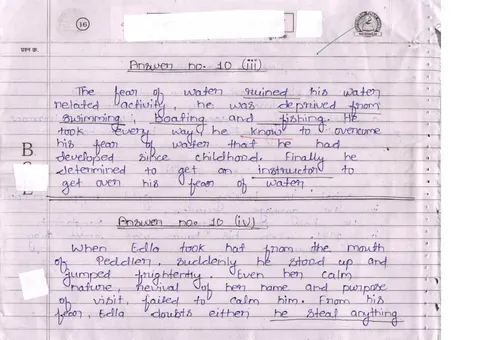 16
प्रश्न क्र.
Answer no. 10 (iii)
The fear of water ruined his water
related activity, he was deprived from
swimming, boating and fishing. He
took every way he know to overcome
his fear of water that he had
developed since childhood. Finally he
determined to get an instructor to
get over his fear of water.
B
Answer no. 10 (iv)
When Edla took hat from the mouth
of Peddler, suddenly he stood up and
jumped frightenty. Even her calm
nature, revival of her name and purpose
of visit, failed to calm him. From his
fear, Edla doubts either he steal anything